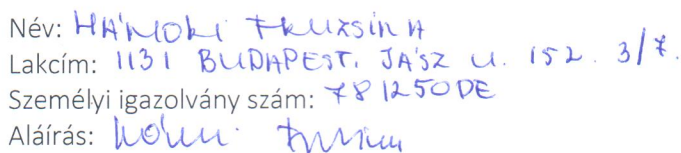 Név: HÁMORI FRUZSINA
Lakcím: 1131 BUDAPEST. JÁSZ U. 152. 3/7.
Személyi igazolvány szám: 781250DE
Aláírás: